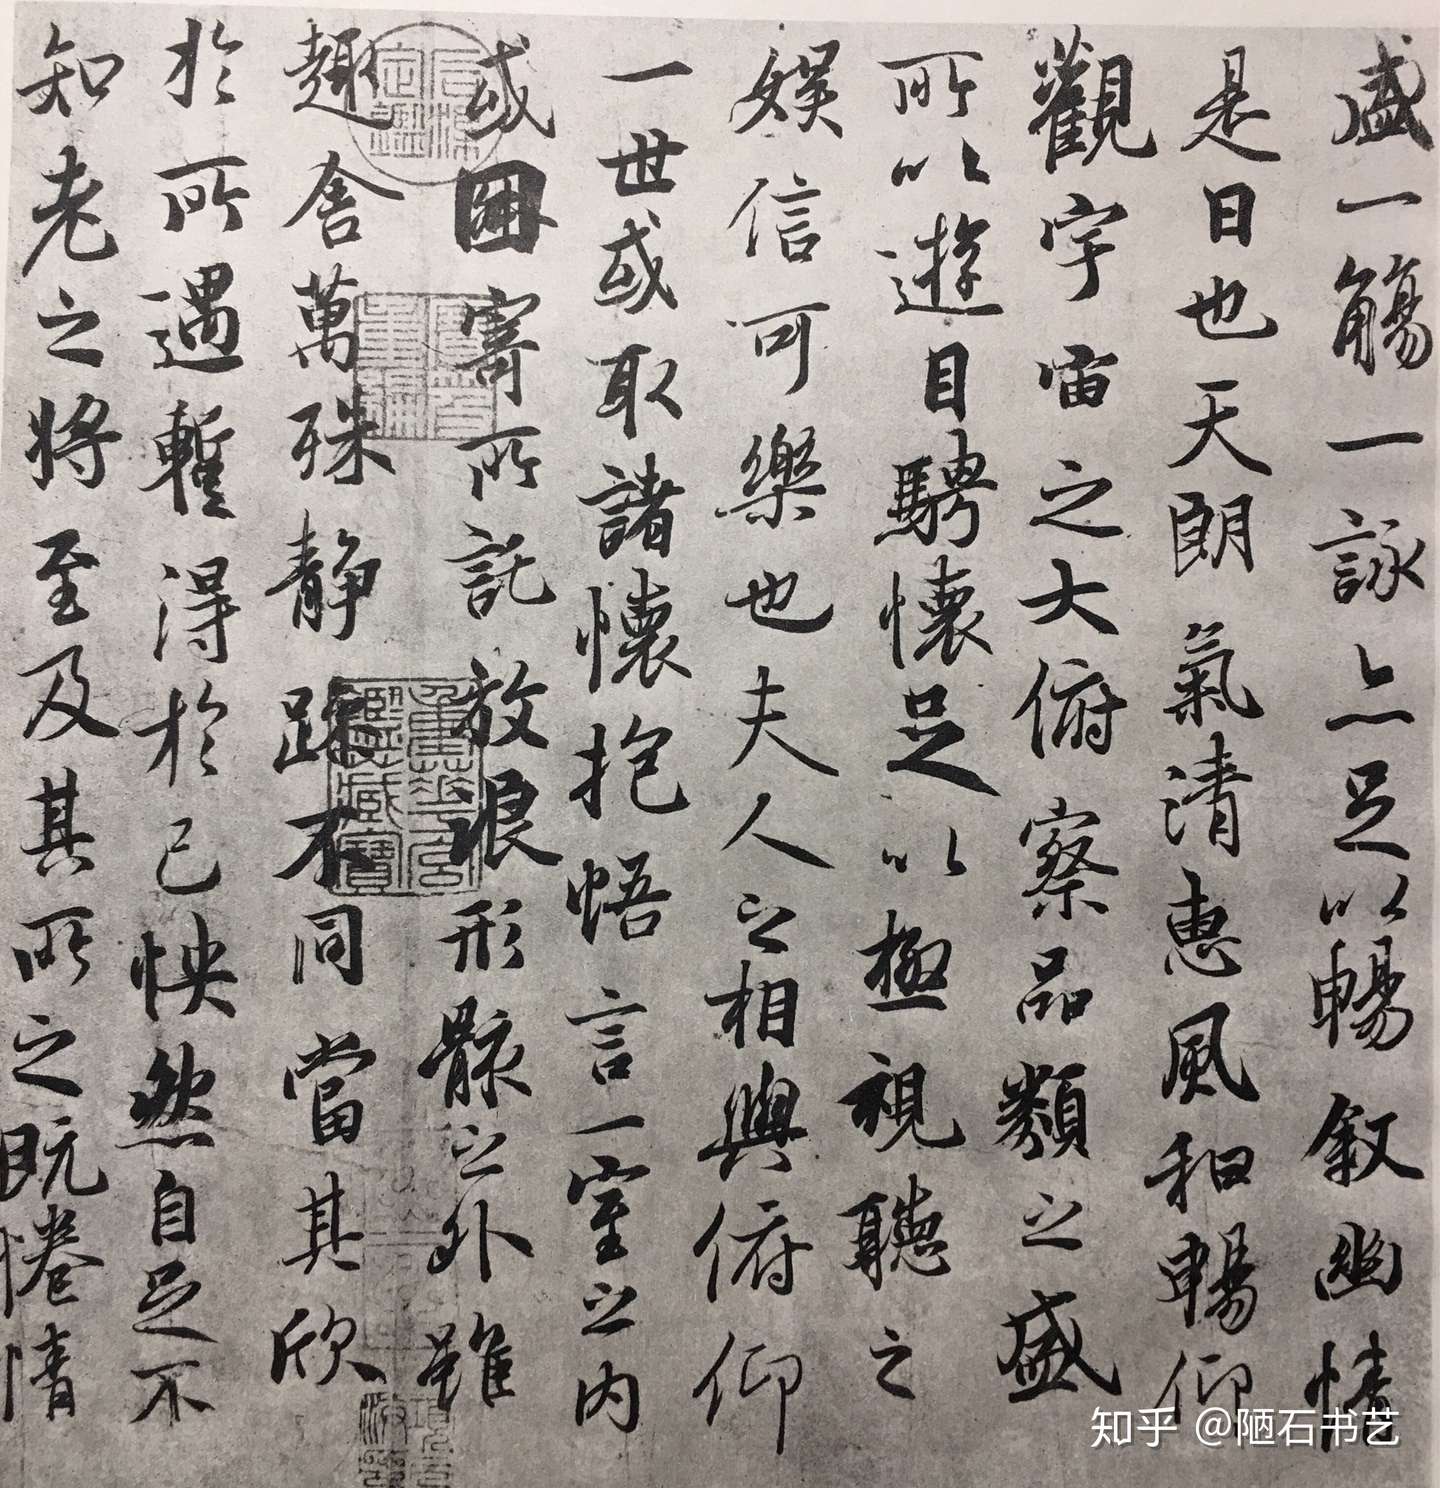 盛一觴一詠亦足以暢叙幽情
是日也天朗氣清惠風和暢仰
觀宇宙之大俯察品類之盛
所以遊目騁懷足以極視聽之
娛信可樂也夫人之相與俯仰
一世或取諸懷抱悟言一室之內
或因寄所託放浪形骸之外雖
趣舍萬殊静躁不同當其欣
於所遇暫得於己怏然自足不
知老之將至及其所之既惓情
知乎 @陋石书艺